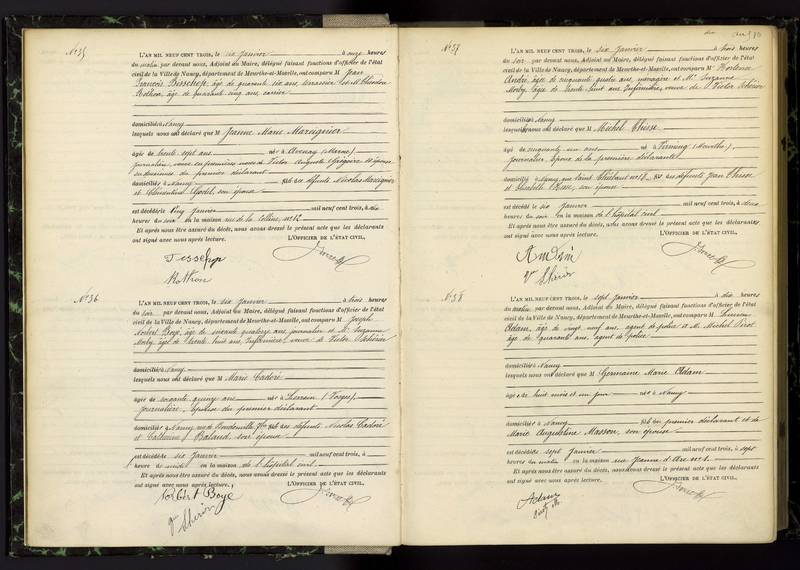 N°35
L'AN MIL NEUF CENT TROIS, le six janvier à onze heures
du matin par devant nous, Adjoint au Maire, délégué faisant fonctions d'officier de l'état
civil de la Ville de Nancy, département de Meurthe-et-Moselle, ont comparu M Jean
François âgé de quarante six ans, et M.
âgé de quarante cinq ans,
domiciliés à Nancy
lesquels nous ont déclaré que M Jeanne Marie Marsignier
âgée de trente sept ans née à Avenay (Marne)
journalière, veuve en premières noces de Victor Auguste Grégoire et épouse
en deuxièmes du premier déclarant
domiciliée à Nancy fille des défunts Nicolas Marsignier
et Clémentine Godet, son épouse
est décédée le cinq janvier mil neuf cent trois, à dix
heures du soir en la maison rue de la Colline, n° 12
Et après nous être assuré du décès, nous avons dressé le présent acte que les déclarants
ont signé avec nous après lecture. L'OFFICIER DE L'ÉTAT CIVIL,
N°36
L'AN MIL NEUF CENT TROIS, le six janvier à trois heures
du soir par devant nous, Adjoint au Maire, délégué faisant fonctions d'officier de l'état
civil de la Ville de Nancy, département de Meurthe-et-Moselle, ont comparu M Joseph
Norbert Boyé, âgé de soixante quatorze ans, journalier et Me Suzanne
Morby, âgée de trente huit ans, infirmière, veuve de Victor Thérion
domiciliés à Nancy
lesquels nous ont déclaré que M Marie Cadoré
âgée de soixante quinze ans née à (Vosges),
journalière, épouse du premier déclarant
domiciliée à Nancy, rue de fille des défunts Nicolas Cadoré
et Catherine Balaud, son épouse
est décédée six janvier mil neuf cent trois, à
heure de midi en la maison de l'hôpital civil
Et après nous être assuré du décès, nous avons dressé le présent acte que les déclarants
ont signé avec nous après lecture. L'OFFICIER DE L'ÉTAT CIVIL,
Norbert Boyé
N°37
L'AN MIL NEUF CENT TROIS, le six janvier à trois heures
du soir par devant nous, Adjoint au Maire, délégué faisant fonctions d'officier de l'état
civil de la Ville de Nancy, département de Meurthe-et-Moselle, ont comparu Me Hortense
André, âgée de cinquante quatre ans, ménagère et Me Suzanne
Morby, âgée de trente huit ans, infirmière, veuve de Victor Thérion
domiciliés à Nancy
lesquels nous ont déclaré que M Michel Thisse
âgé de cinquante un ans né à (Moselle),
journalier, époux de la première déclarante
domicilié à Nancy, rue Saint n° 12, fils des défunts Jean Thisse
et Elisabeth son épouse
est décédé le six janvier mil neuf cent trois, à deux
heures du soir en la maison de l'hôpital civil
Et après nous être assuré du décès, nous avons dressé le présent acte que les déclarants
ont signé avec nous après lecture. L'OFFICIER DE L'ÉTAT CIVIL,
N°38
L'AN MIL NEUF CENT TROIS, le sept janvier à dix heures
du matin par devant nous, Adjoint au Maire, délégué faisant fonctions d'officier de l'état
civil de la Ville de Nancy, département de Meurthe-et-Moselle, ont comparu M Lucien
Adam, âgé de vingt neuf ans, agent de police et M. Michel Pirot
âgé de quarante ans, agent de police
domiciliés à Nancy
lesquels nous ont déclaré que M Germaine Marie Adam
âgée de huit mois et un jour née à Nancy
domiciliée à Nancy fille du premier déclarant et de
Marie Augustine Masson, son épouse
est décédée sept janvier mil neuf cent trois, à sept
heures du matin en la maison rue Jeanne d'Arc n°
Et après nous être assuré du décès, nous avons dressé le présent acte que les déclarants
ont signé avec nous après lecture. L'OFFICIER DE L'ÉTAT CIVIL,
Adam